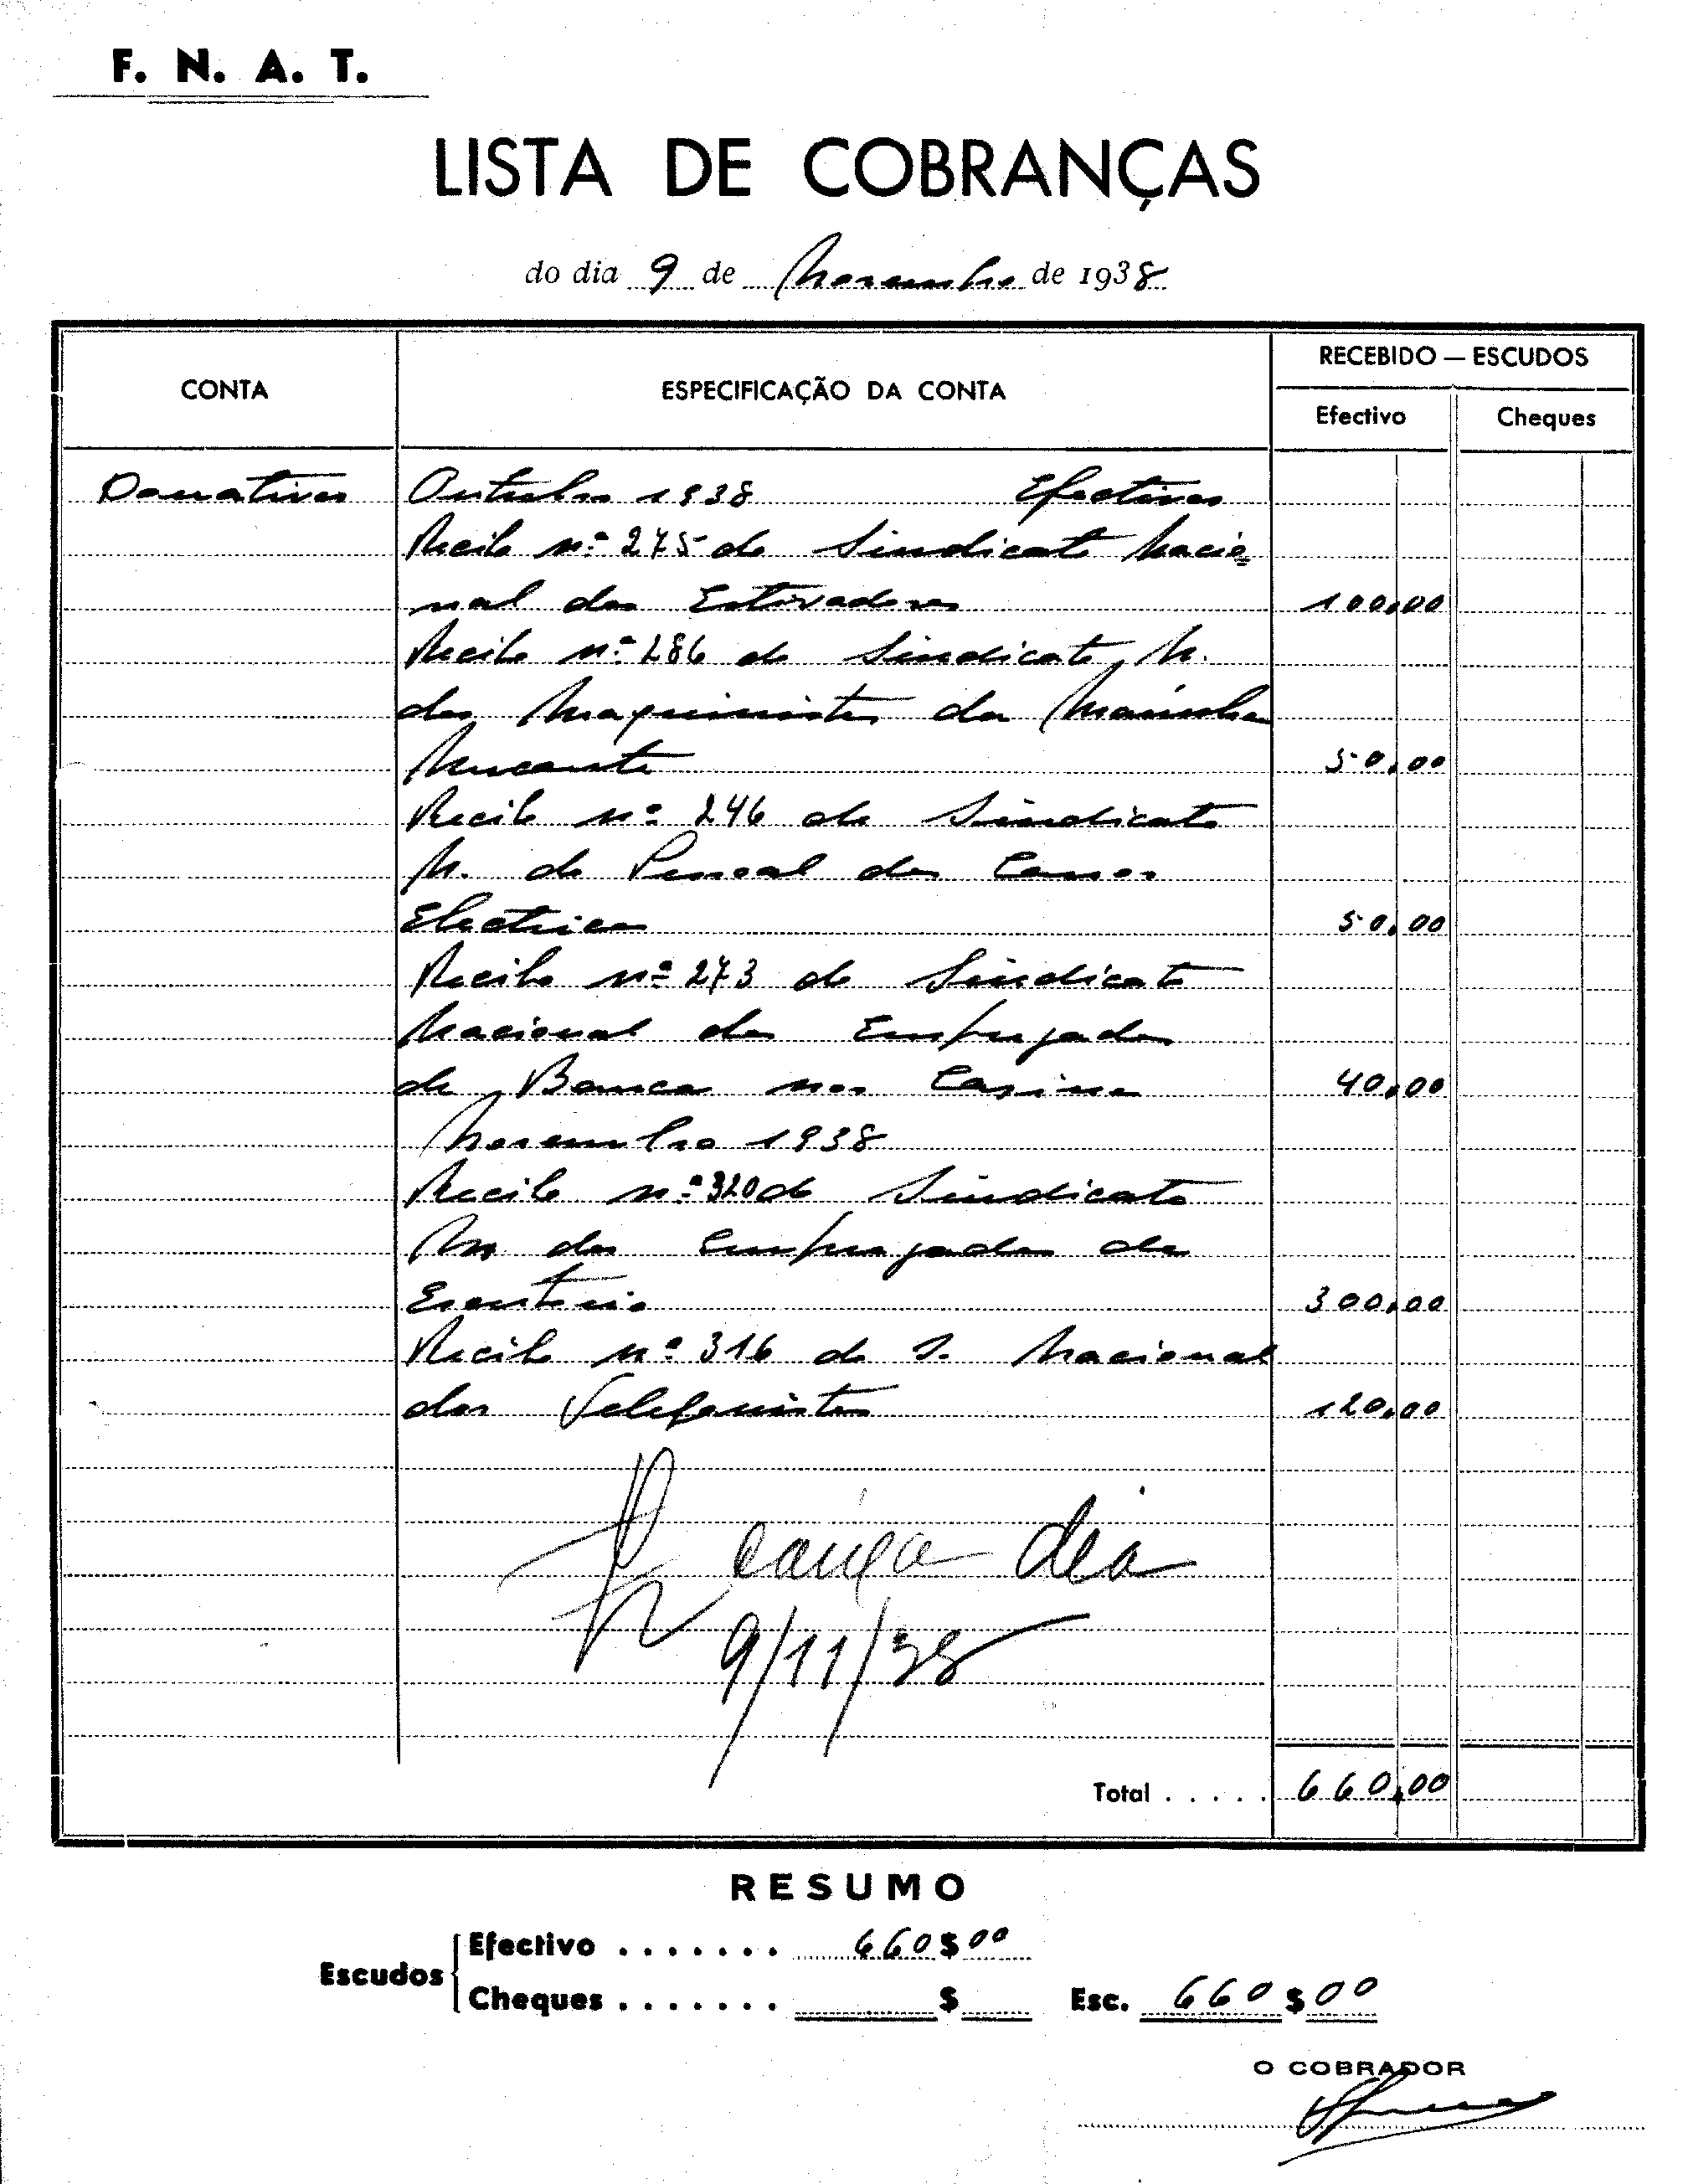 F. N. A. T.
LISTA DE COBRANÇAS
do dia 9 de Novembro de 1938
CONTA
ESPECIFICAÇÃO DA CONTA
RECEBIDO — ESCUDOS
Efectivo
Cheques
Donativos Outubro 1938 Efectivos
Recibo nº 275 do Sindicato Nacio=
nal dos Estivadores 100,00
Recibo nº 286 do Sindicato N.
dos Maquinistas da Marinha
Mercante 50,00
Recibo nº 246 do Sindicato
N. do Pessoal dos Carros
Electricos 50,00
Recibo nº 273 do Sindicato
Nacional dos Empregados
de Banca nos Casinos 40,00
Novembro 1938
Recibo nº 320 do Sindicato
N. dos Empregados de
Escritorio 300,00
Recibo nº 316 do S. Nacional
dos Telefonistas 120,00
caixa dia
9/11/38
Total . . . . . 660,00
RESUMO
Escudos
Efectivo . . . . . . . 660$00
Cheques . . . . . . . $
Esc. 660$00
O COBRADOR